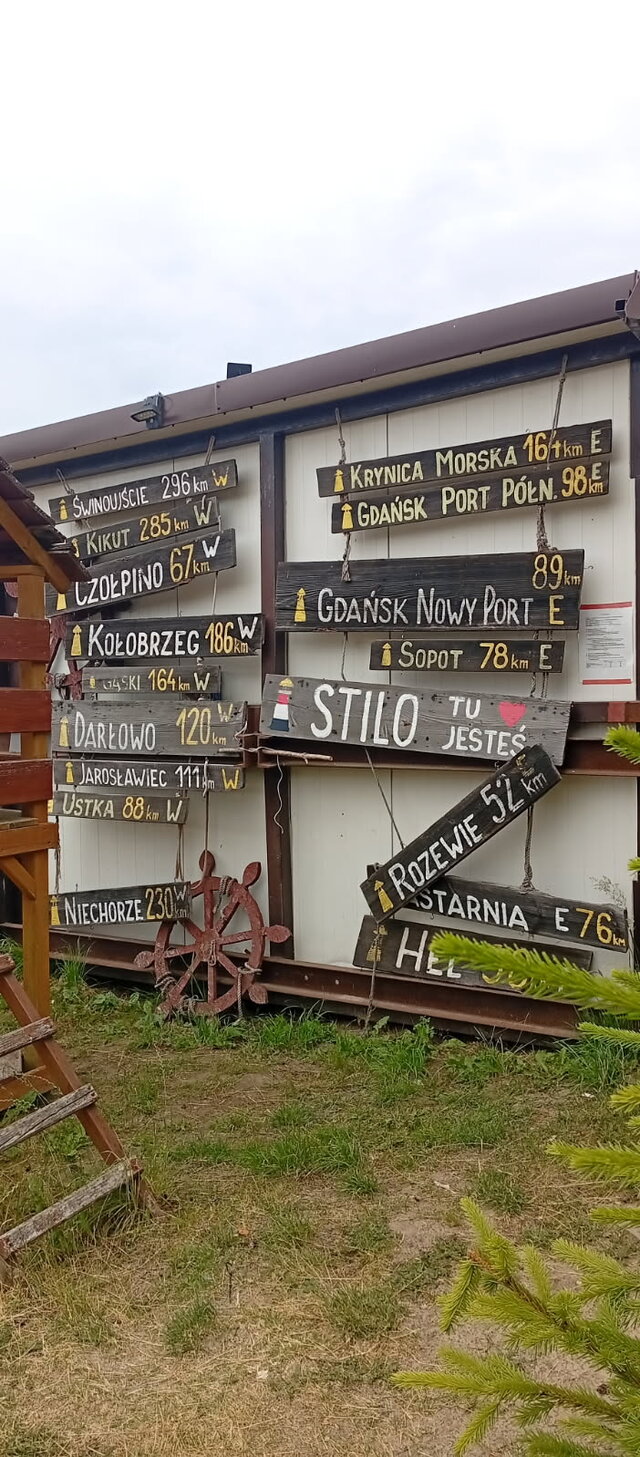 ŚWINOUJŚCIE 296 km W
KIKUT 285 km W
CZOŁPINO 67 km W
KOŁOBRZEG 186 km W
GĄSKI 164 km W
DARŁOWO 120 km W
JAROSŁAWIEC 111 km W
USTKA 88 km W
NIECHORZE 230 km W
KRYNICA MORSKA 164 km E
GDAŃSK PORT PÓŁN. 98 km E
GDAŃSK NOWY PORT 89 km E
SOPOT 78 km E
STILO TU ♥ JESTEŚ
ROZEWIE 52 km
STARNIA E 76 km
HEL